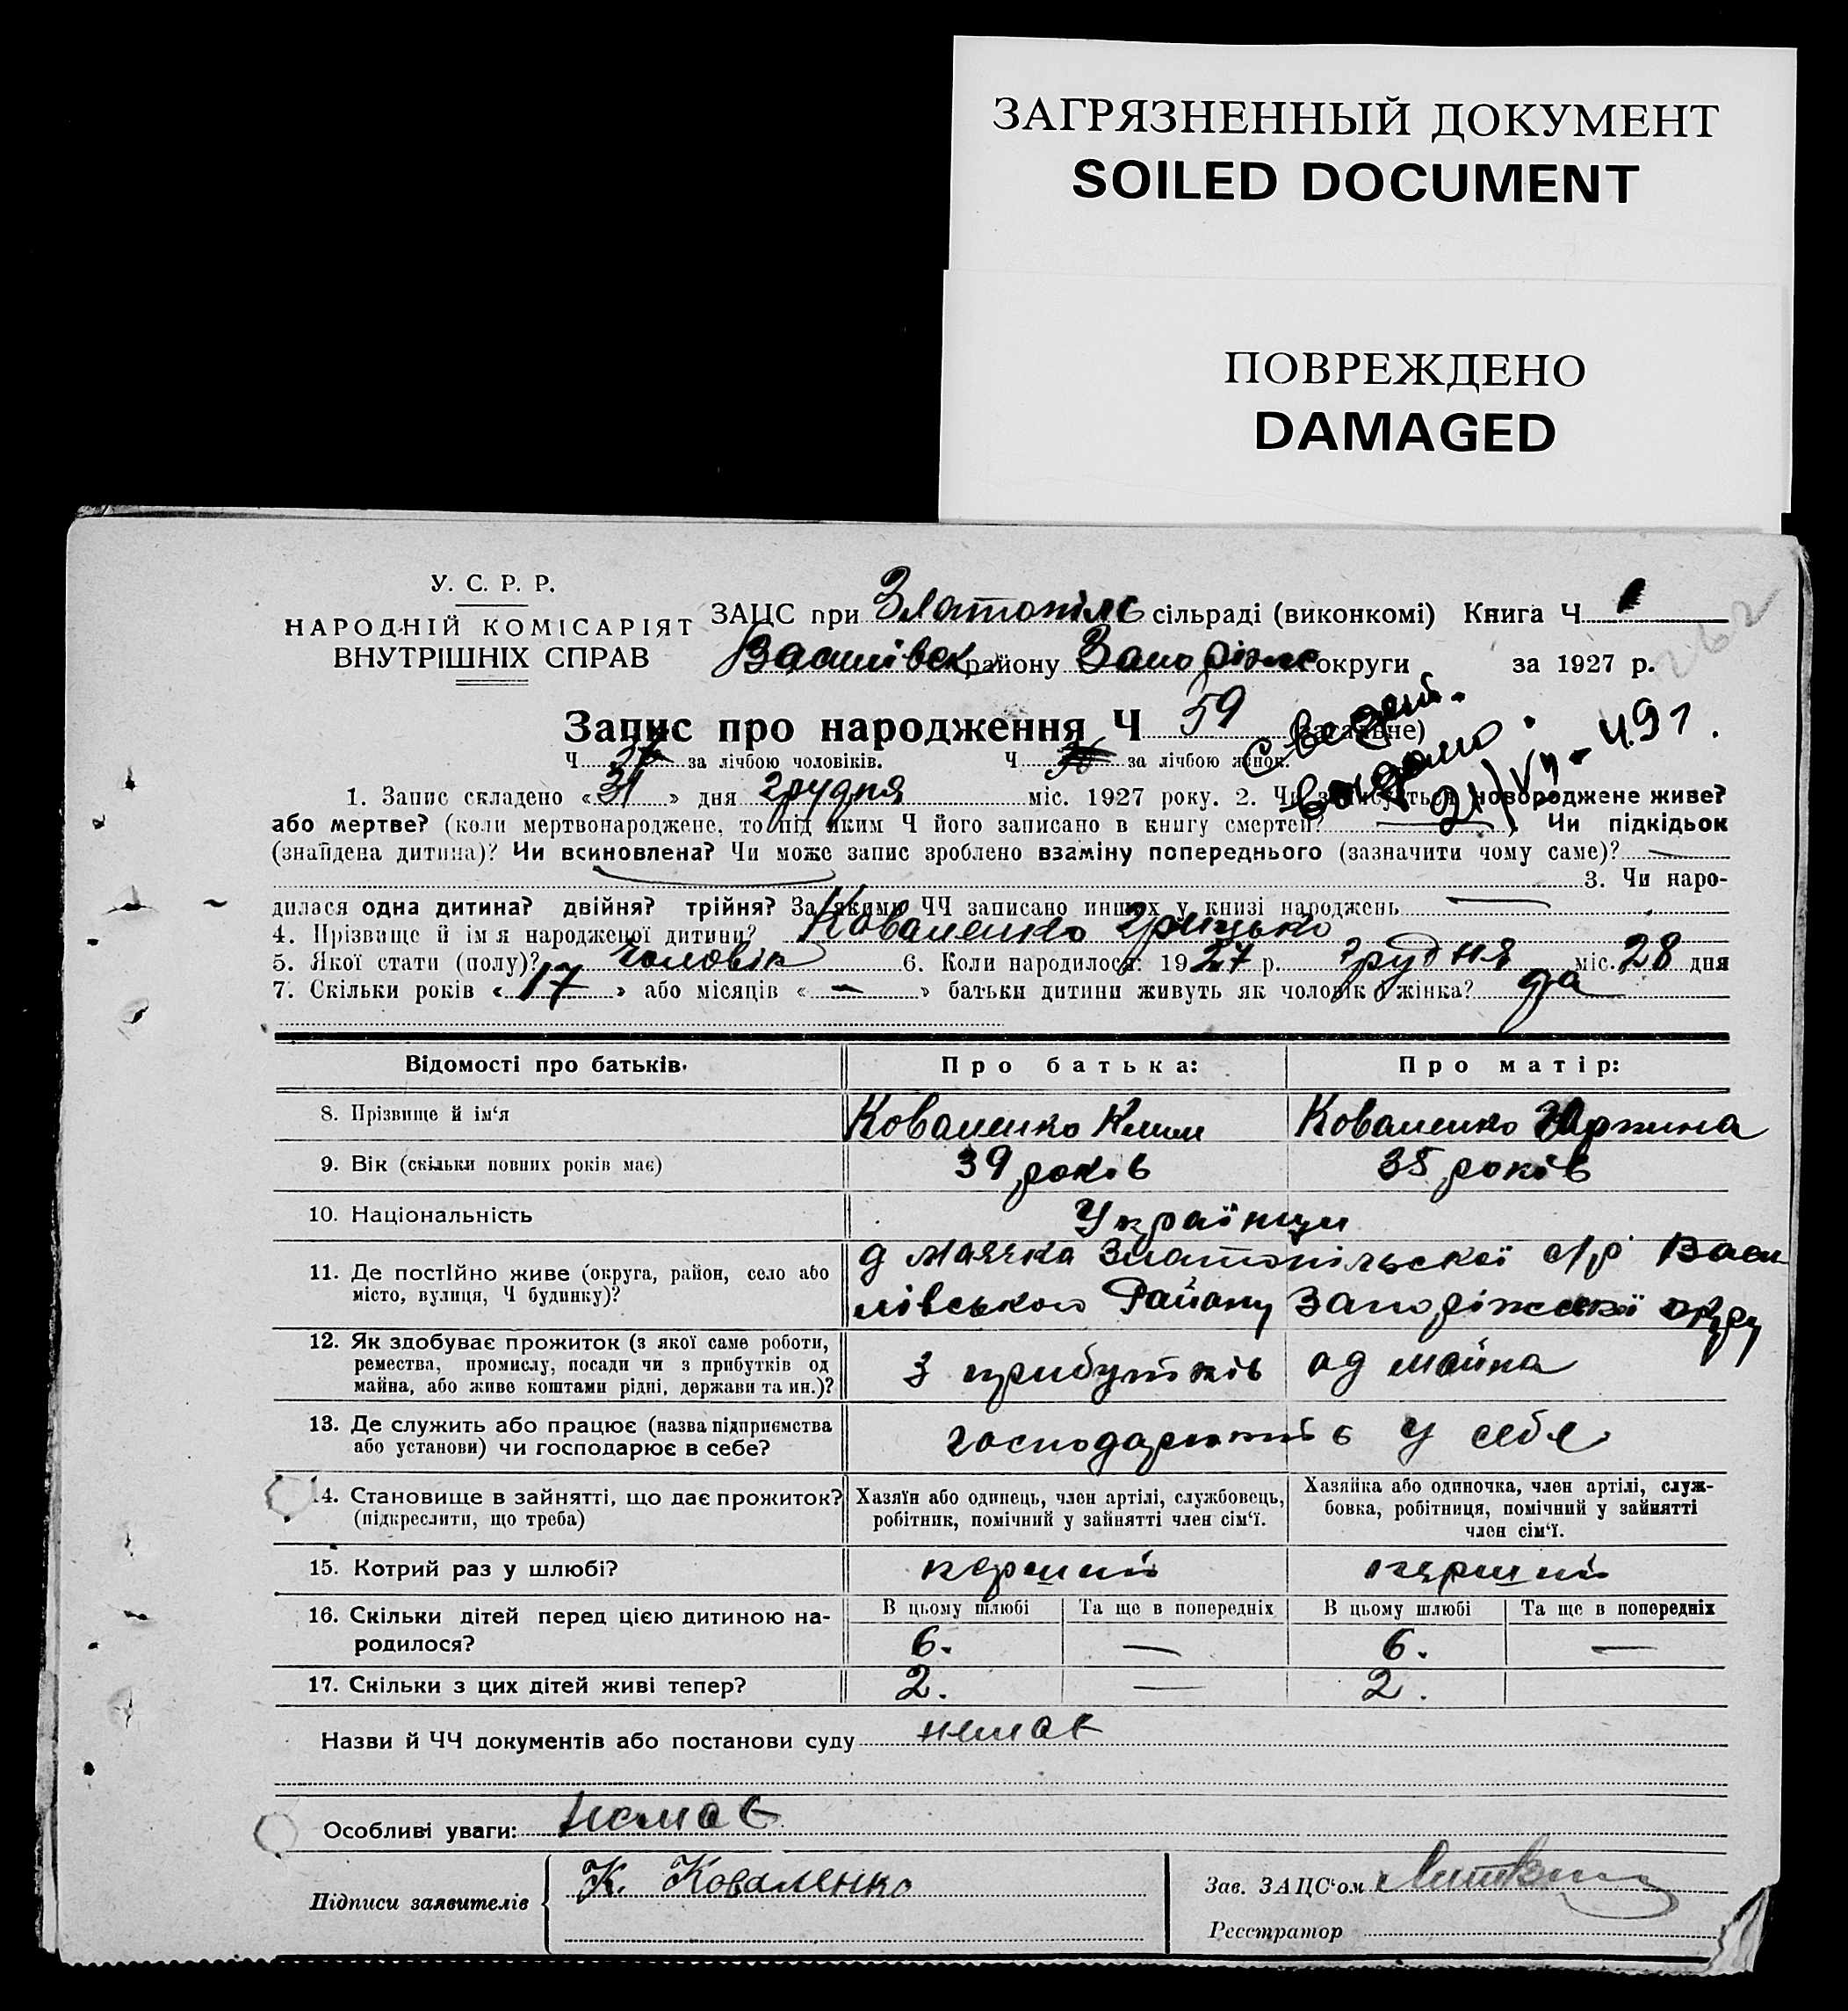 ЗАГРЯЗНЕННЫЙ ДОКУМЕНТ
SOILED DOCUMENT
ПОВРЕЖДЕНО
DAMAGED
У. С. Р. Р.
НАРОДНІЙ КОМІСАРІЯТ
ВНУТРІШНІХ СПРАВ
ЗАЦС при Златопіль сільраді (виконкомі) Книга Ч 1
Василівськ району Запоріжс округи за 1927 р.
262
Запис про народження Ч 59 (загальне)
Ч за лічбою чоловіків. Ч за лічбою жінок.
Свидет.
выдано.
491.
1. Запис складено « 31 » дня грудня міс. 1927 року. 2. Чи записується новороджене живе?
або мертве? (коли мертвонароджене, то під яким Ч його записано в книгу смертей? — ) Чи підкідьок
(знайдена дитина)? Чи всиновлена? Чи може запис зроблено взаміну попереднього (зазначити чому саме)? —
3. Чи наро-
дилася одна дитина? двійня? трійня? За якими ЧЧ записано инших у книзі народжень —
4. Прізвище й ім я народженої дитини? Коваленко Грицько
5. Якої стати (полу)? чоловік 6. Коли народилося: 1927 р. грудня міс. 28 дня
7. Скільки років « 17 » або місяців « — » батьки дитини живуть як чоловік і жінка? да
Відомості про батьків. Про батька: Про матір:
8. Прізвище й ім‘я Коваленко Клим Коваленко
9. Вік (скільки повних років має) 39 років 35 років
10. Національність Українци
11. Де постійно живе (округа, район, село або місто, вулиця, Ч будинку)? д Маячка Златопільскої с/р Васи
лівського Району Запоріжської окру
12. Як здобуває прожиток (з якої саме роботи,
ремества, промислу, посади чи з прибутків од
майна, або живе коштами рідні, держави та ин.)? З прибутків од майна
13. Де служить або працює (назва підприємства
або установи) чи господарює в себе? господарюють у себе
14. Становище в зайнятті, що дає прожиток?
(підкреслити, що треба)
Хазяїн або одинець, член артілі, службовець,
робітник, помічний у зайнятті член сім‘ї.
Хазяйка або одиночка, член артілі, служ-
бовка, робітниця, помічний у зайнятті
член сім‘ї.
15. Котрий раз у шлюбі? перший перший
16. Скільки дітей перед цією дитиною на-
родилося?
В цьому шлюбі Та ще в попередніх В цьому шлюбі Та ще в попередніх
6. — 6. —
17. Скільки з цих дітей живі тепер? 2. — 2.
Назви й ЧЧ документів або постанови суду немає
Особливі уваги: немає
Підписи заявителів К. Коваленко
Зав. ЗАЦС‘ом
Реєстратор